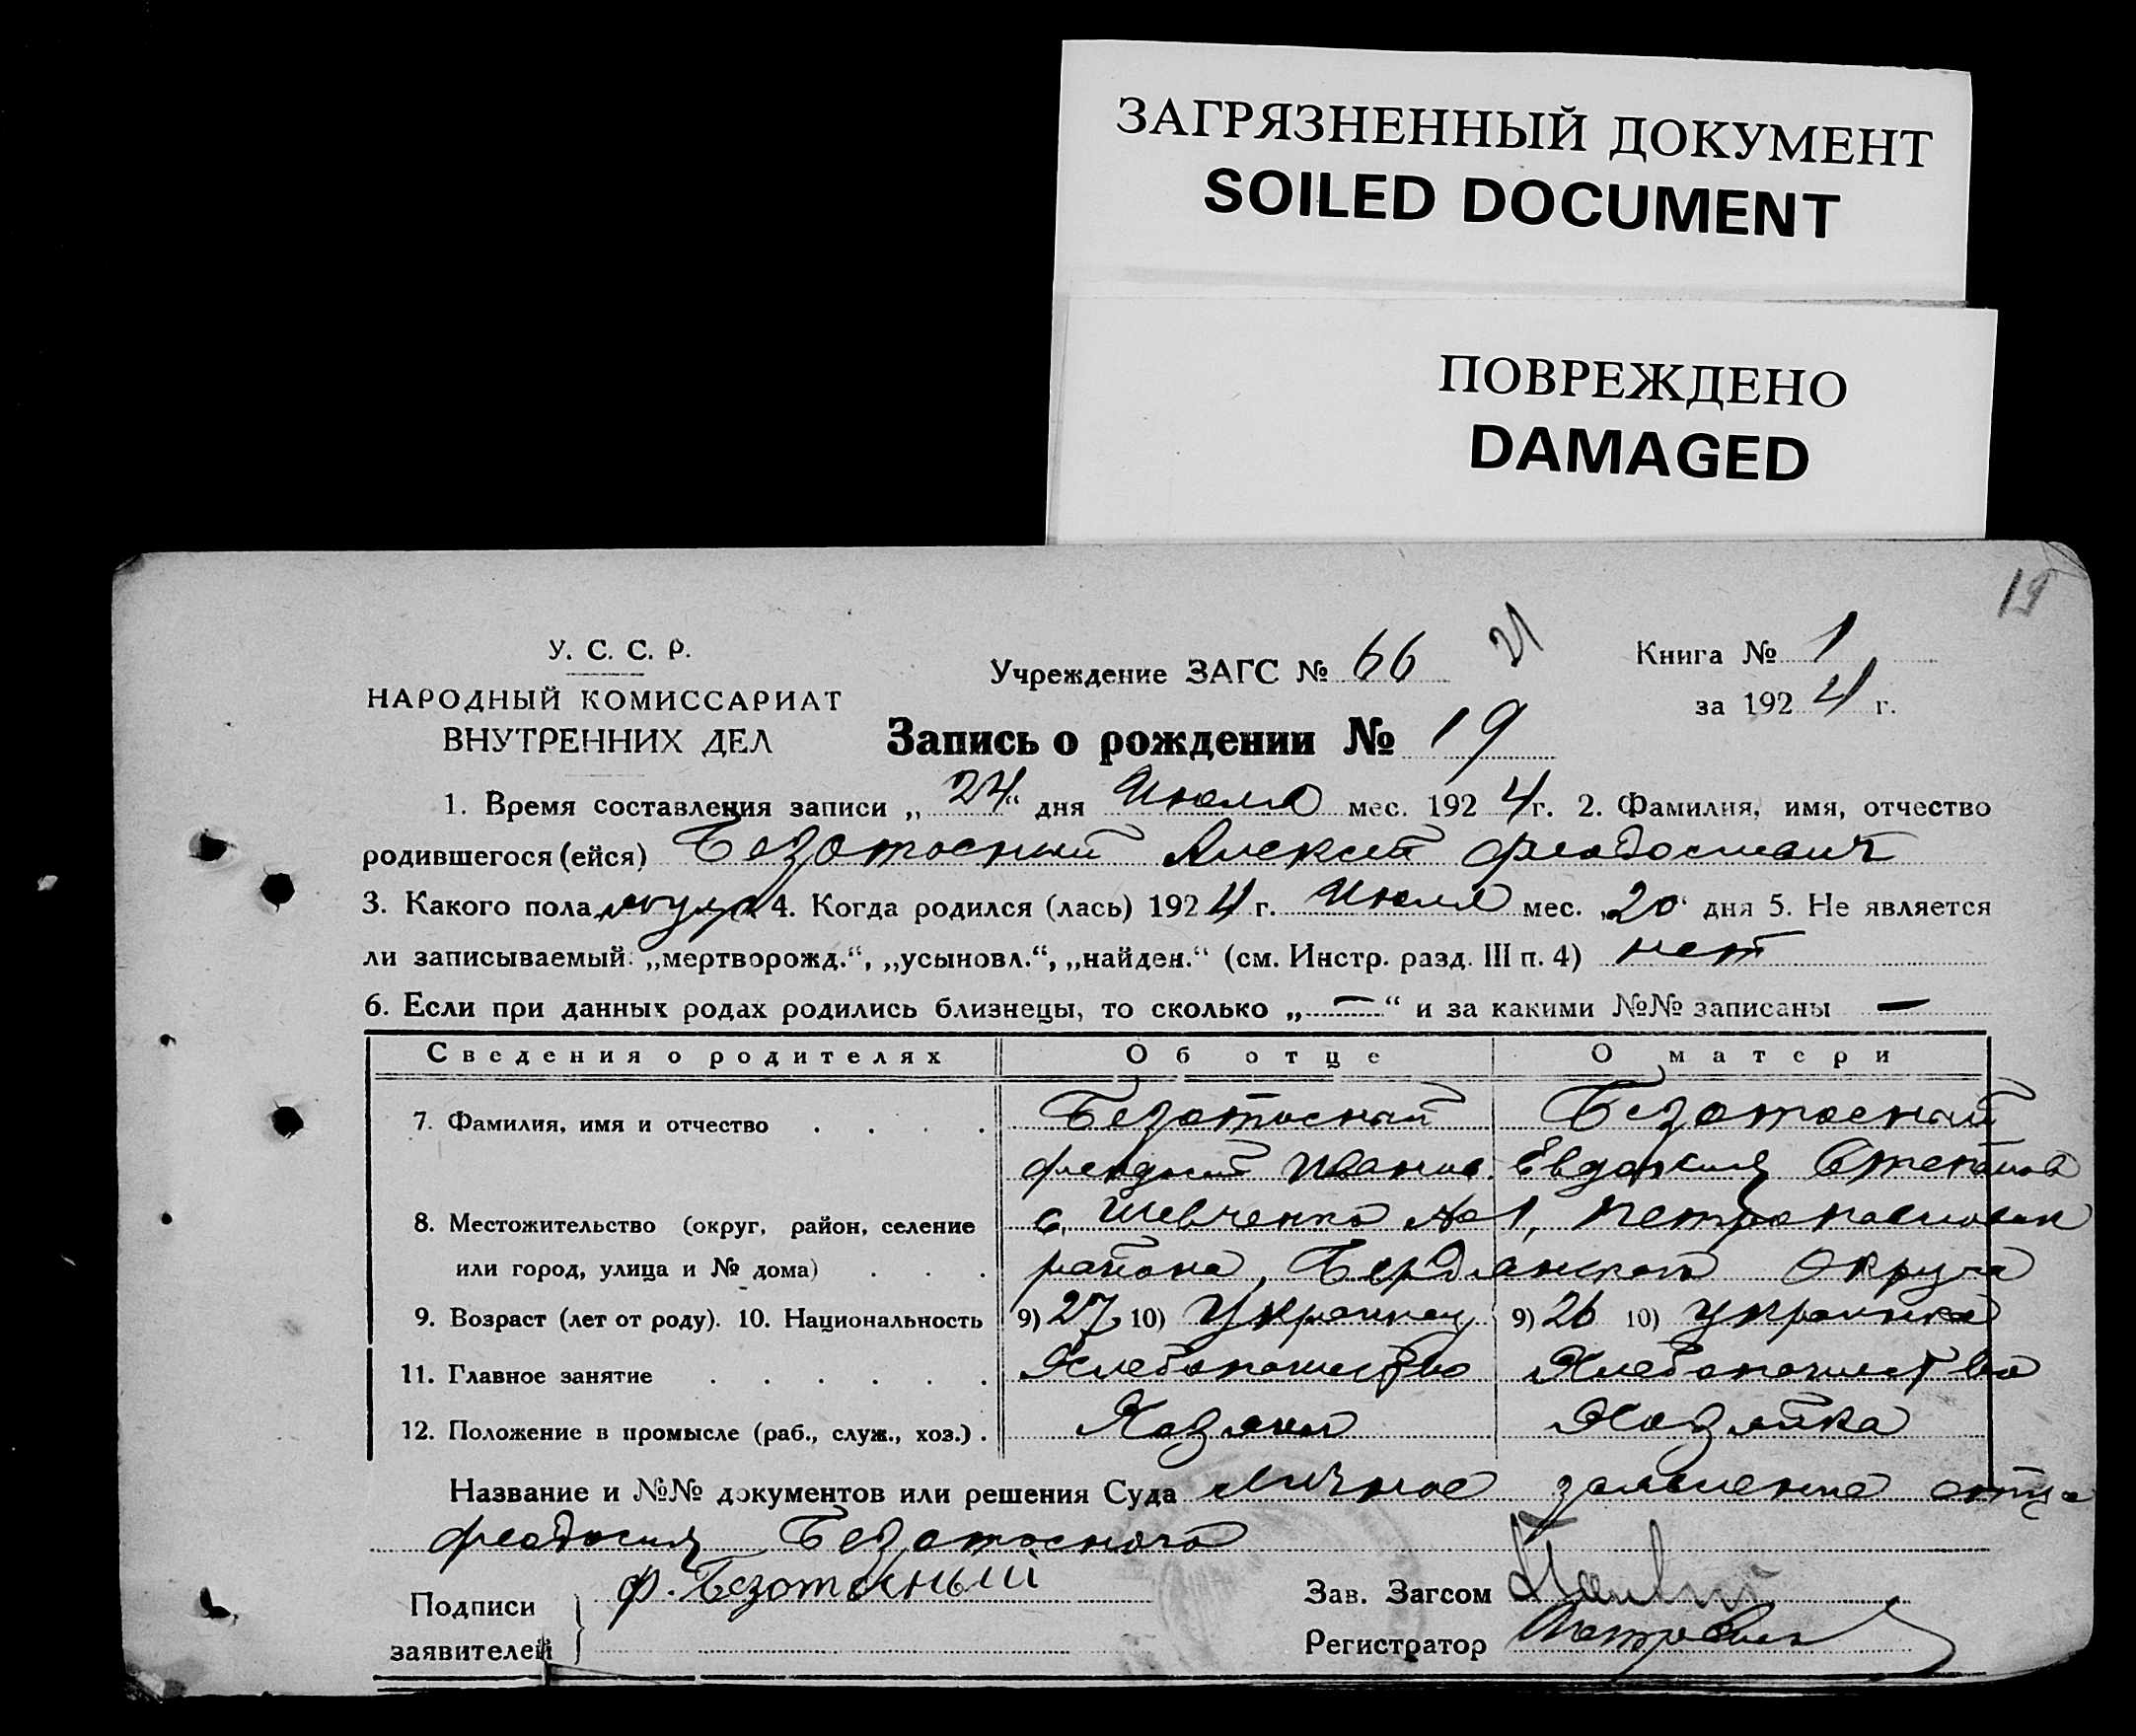 ЗАГРЯЗНЕННЫЙ ДОКУМЕНТ
SOILED DOCUMENT
ПОВРЕЖДЕНО
DAMAGED
19
У. С. С. Р.
НАРОДНЫЙ КОМИССАРИАТ
ВНУТРЕННИХ ДЕЛ
Учреждение ЗАГС № 66
21
Книга № 1
за 1924 г.
Запись о рождении № 19
1. Время составления записи „24“ дня Июля мес. 1924 г. 2. Фамилия, имя, отчество
родившегося (ейся) Безотосный Алексей Феодосиевич
3. Какого пола муж 4. Когда родился (лась) 1924 г. Июля мес. „20“ дня 5. Не является
ли записываемый: „мертворожд.“, „усыновл.“, „найден.“ (см. Инстр. разд. III п. 4) нет
6. Если при данных родах родились близнецы, то сколько „—“ и за какими №№ записаны —
Сведения о родителях Об отце О матери
7. Фамилия, имя и отчество . . . . Безотосный Безотосный
Феодосий Иванов. Евдокия Степанов
8. Местожительство (округ, район, селение с. Шевченко № 1, Петропавловск
или город, улица и № дома) . . . района, Бердянского округа
9. Возраст (лет от роду). 10. Национальность 9) 27 10) Украинец 9) 26 10) Украинка
11. Главное занятие . . . . . . Хлебопашество Хлебопашество
12. Положение в промысле (раб., служ., хоз.) . Хозяин Хозяйка
Название и №№ документов или решения Суда Личное заявление отца
Феодосия Безотосного
Подписи
заявителей
Ф. Безотосный
Зав. Загсом
Регистратор